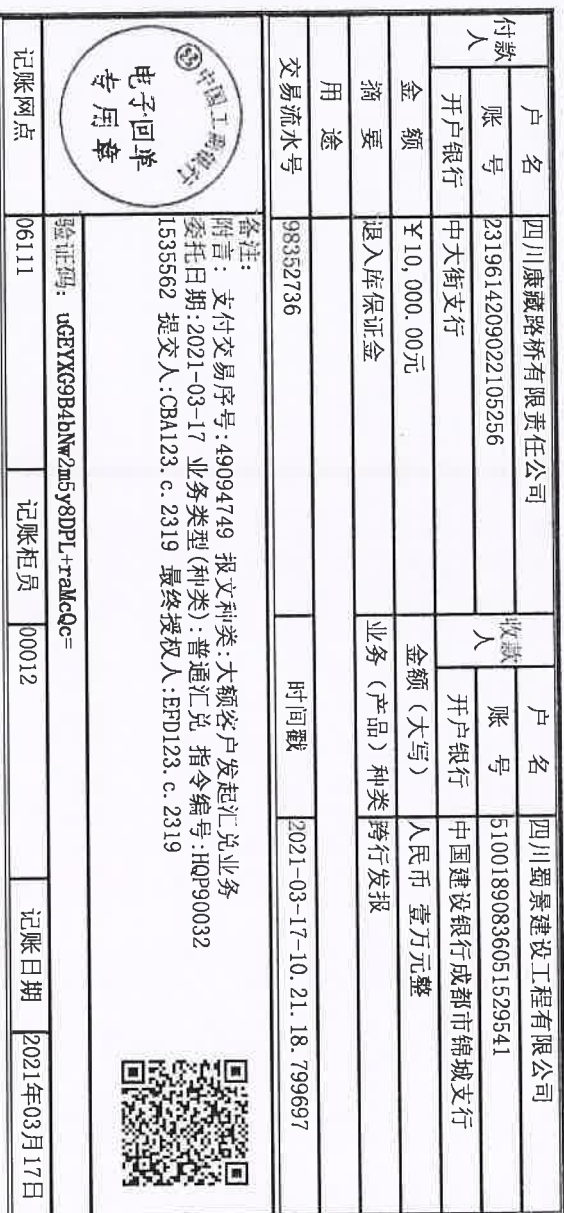 付款人 户 名 四川康藏路桥有限责任公司 收款人 户 名 四川蜀景建设工程有限公司
账 号 2319614209022105256 账 号 51001890836051529541
开户银行 中大街支行 开户银行 中国建设银行成都市锦城支行
金 额 ¥10,000.00元 金额（大写） 人民币 壹万元整
摘 要 退入库保证金 业务（产品）种类 跨行发报
用 途
交易流水号 98352736 时间戳 2021-03-17-10.21.18.799697
中国工商银行
电子回单
专用章
备注：
附言： 支付交易序号:49094749 报文种类:大额客户发起汇兑业务
委托日期:2021-03-17 业务类型(种类):普通汇兑 指令编号:HQP90032
1535562 提交人:CBA123.c.2319 最终授权人:EFD123.c.2319
验证码: uGEYXG9B4bNw2m5y8DPL+raMcQc=
记账网点 06111 记账柜员 00012 记账日期 2021年03月17日